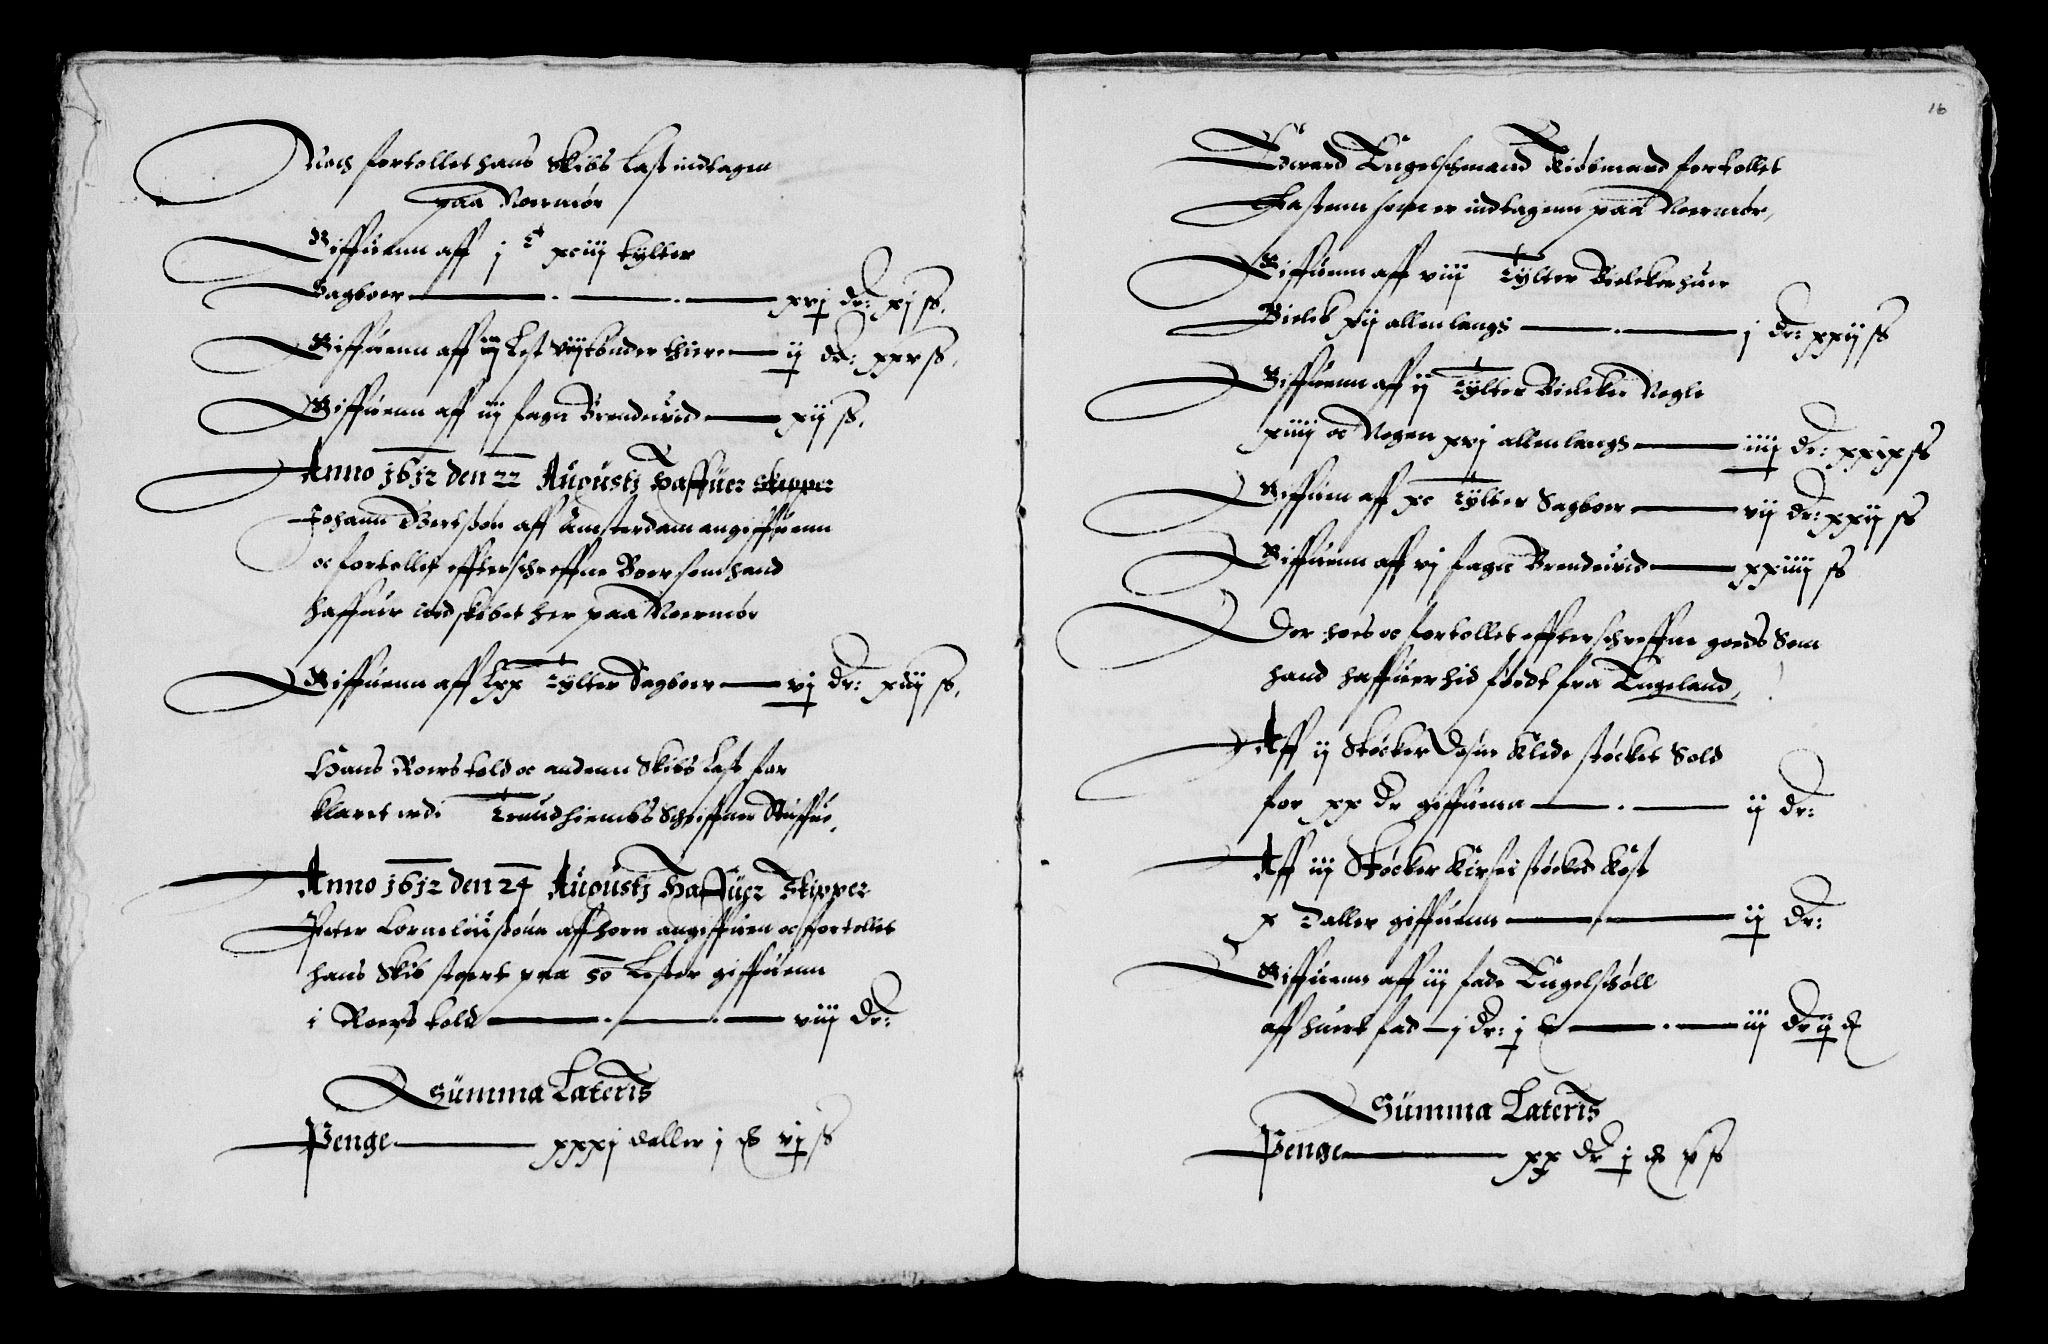 Noch fortollet hans Skibs Last indtagen
paa Noermør
Giffuenn aff j c xciiij tylter
Sagboer xvj dr: xj ß.
Giffuenn aff iij Lest viij tønder thiere ij dr: xxv ß.
Giffuenn aff iij fagn Brendeuid xij ß.
Anno 1612 den 22 Augustj Haffuer Skipper
Johann aff Amsterdam angiffuenn
oc fortollet effterschreffne Boer som hand
haffuer indskibet her paa Noermør
Giffuenn aff Lxx Tylter Sagboer vj dr: xiij ß.
Hans Roers told oc andenn Skibs Last for
klaret udi Trundhiembs Schriffuer
Anno 1612 den 24 Augustj Haffuer Skipper
Peter Cornelüisßønn aff horn angiffuen oc fortollet
hans Skib stoert paa 50 Lester giffuenn
i Roers told viij dr:
Summa Lateris
Penge xxxj daller j vj ß
16
Edward Engelschmand fortollet
Lastenn som er indtagenn paa Noermør,
Giffuenn aff viij Tylter Bielcker huer
Bielck xij allen langs j dr: xxij ß
Giffuenn aff ij Tylter Bielcker Nogle
xiiij oc Nogen xvj allen langs iiij dr: xxix ß
Giffuen aff xc Tylter Sagboer vij dr: xxij ß
Giffuenn aff vj fagn Brendeuid xxiiij ß
Der hoes oc fortollet effterschreffne goeds Som
hand haffuer hid førdt fra Engeland,
Aff ij Støcker Klede støcket Sold
for xx dr giffuenn ij dr:
Aff iij Støcker Kirsei støcket Kost
x Daller giffuenn ij dr:
Giffuenn aff iij fade Engelst øll
aff huert fad j dr: j iij dr ij
Summa Lateris
Penge xx dr j x ß